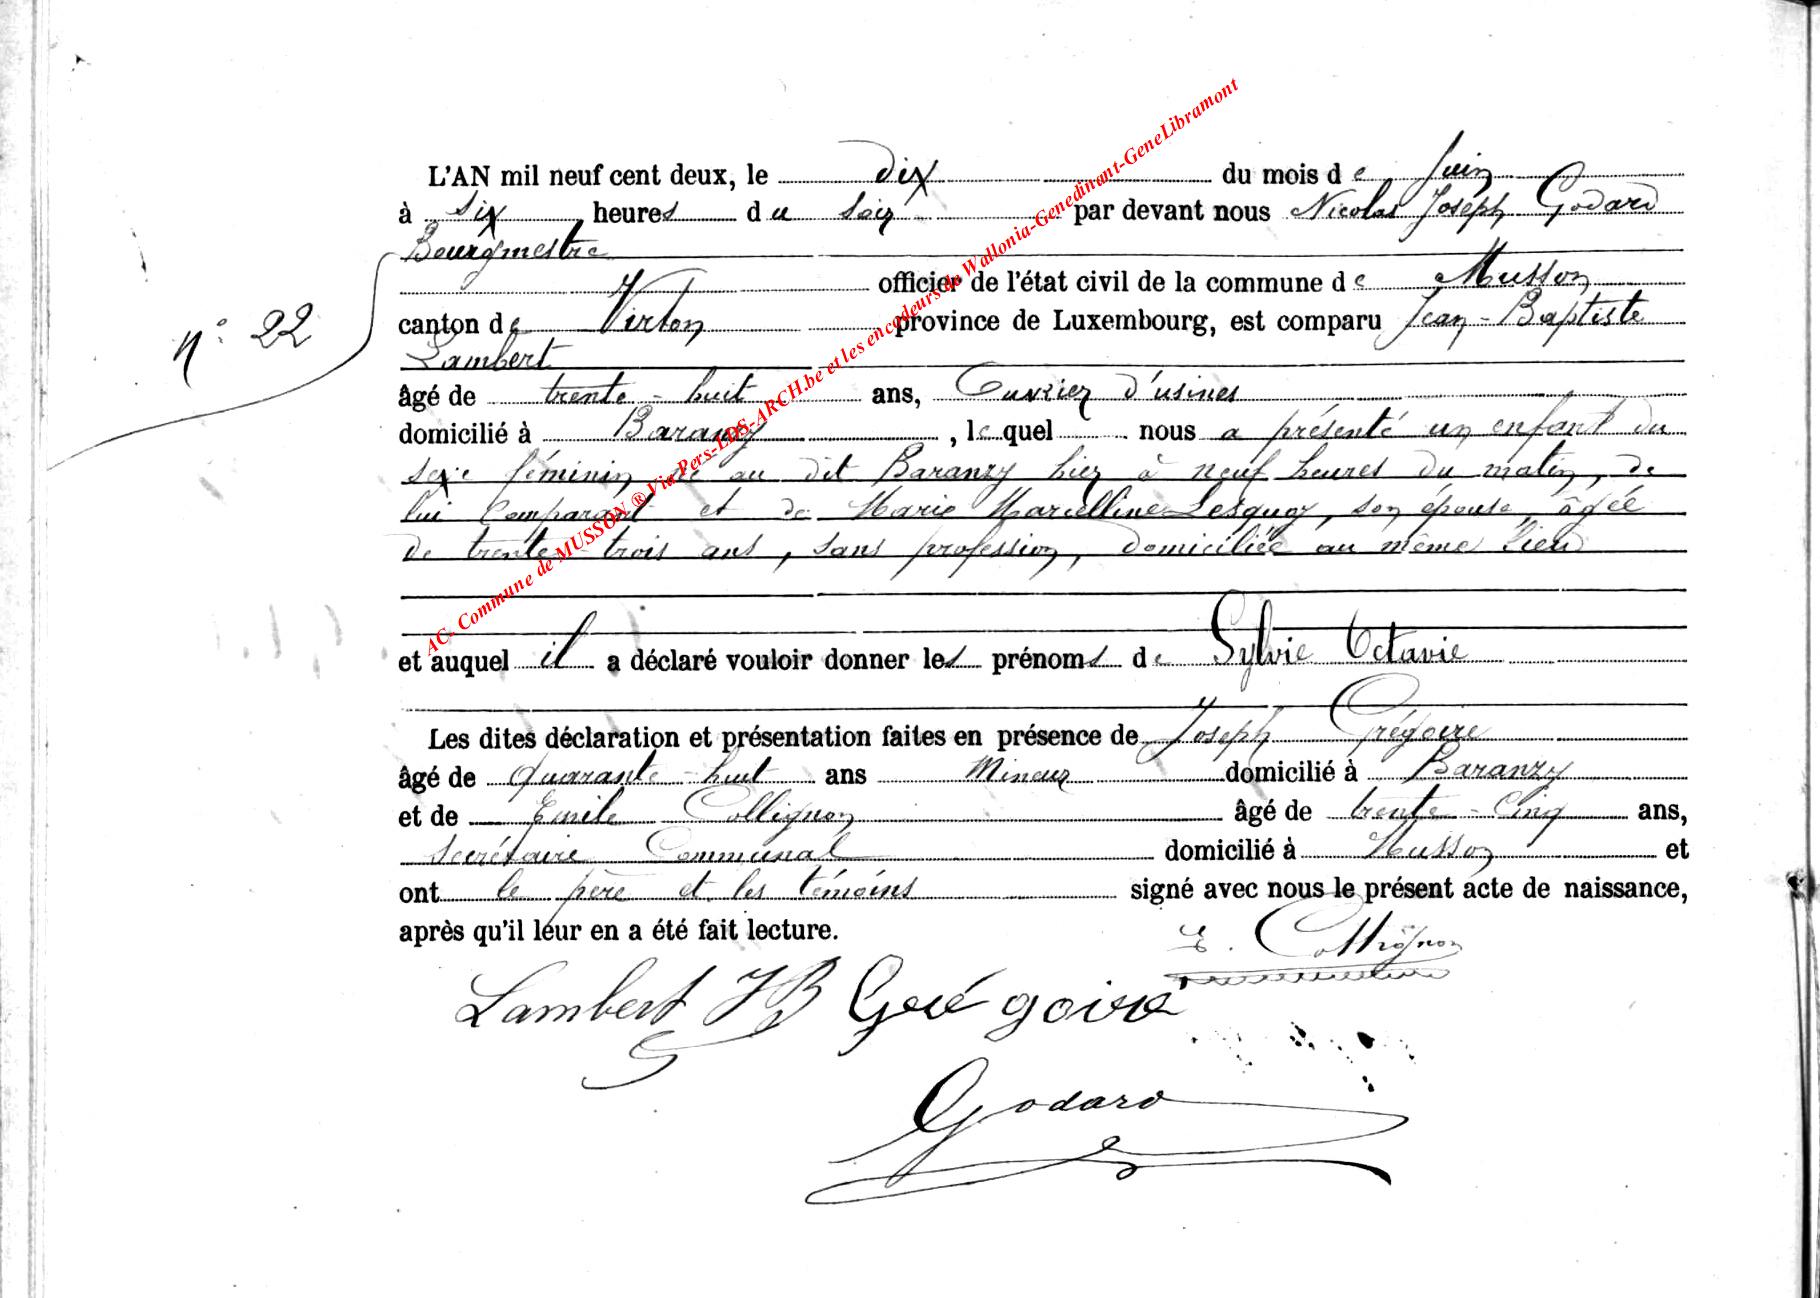 L'AN mil neuf cent deux, le dix du mois de Juin
à six heures du soir par devant nous Nicolas Joseph Godard
Bourgmestre
officier de l'état civil de la commune de Musson
n° 22
canton de Virton province de Luxembourg, est comparu Jean-Baptiste
Lambert
âgé de trente-huit ans, Ouvrier d'usines
domicilié à Baranzy, lequel nous a présenté un enfant du
sexe féminin né au dit Baranzy hier à neuf heures du matin, de
lui Comparant et de Marie Marcelline Lesquoy, son épouse, âgée
de trente trois ans, sans profession, domiciliée au même lieu
et auquel il a déclaré vouloir donner les prénoms de Sylvie Octavie
Les dites déclaration et présentation faites en présence de Joseph Grégoire
âgé de quarante-huit ans Mineur domicilié à Baranzy
et de Emile Collignon âgé de trente-cinq ans,
secrétaire Communal domicilié à Musson et
ont le père et les témoins signé avec nous le présent acte de naissance,
après qu'il leur en a été fait lecture.
E. Collignon
Lambert JB Grégoire
Godard
AC- Commune de MUSSON ® Via Pers-LDS-ARCH.be et les encodeurs de Wallonia-Genedinant-GeneLibramont